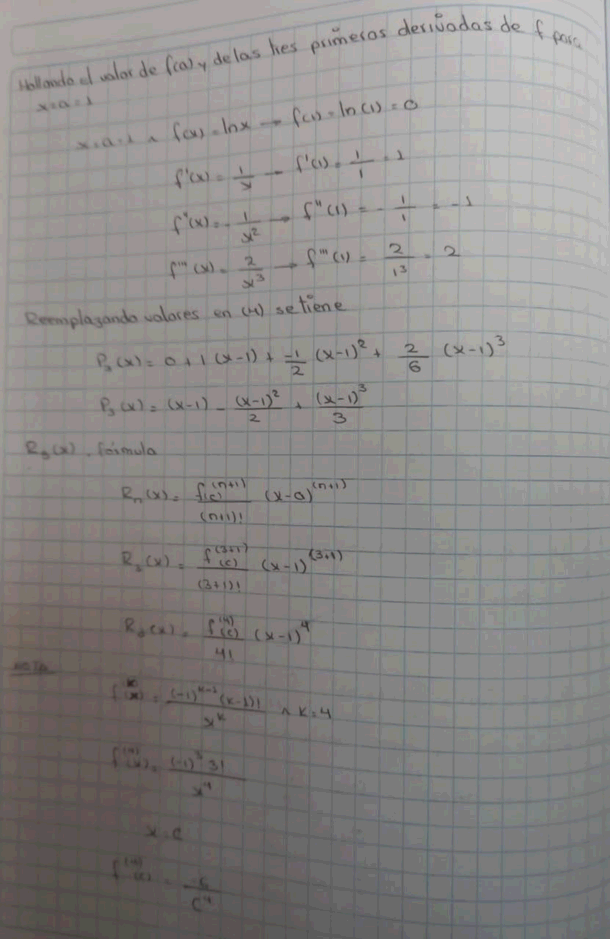 Hallando el valor de f(a) y de las tres primeras derivadas de f para
x=a=1
x=a=1 ∧ f(x)=lnx → f(1)=ln(1)=0
f'(x)= 1/x → f'(1)= 1/1 = 1
f''(x)=- 1/x² → f''(1)= - 1/1 = -1
f'''(x)= 2/x³ → f'''(1)= 2/1³ = 2
Reemplazando valores en (4) se tiene
P₃(x)= 0+1(x-1)+ -1/2 (x-1)² + 2/6 (x-1)³
P₃(x)= (x-1) - (x-1)²/2 + (x-1)³/3
R₃(x). fórmula
Rₙ(x)= f⁽ⁿ⁺¹⁾(c)/(n+1)! (x-a)⁽ⁿ⁺¹⁾
R₃(x)= f⁽³⁺¹⁾(c)/(3+1)! (x-1)⁽³⁺¹⁾
R₃(x)= f⁽⁴⁾(c)/4! (x-1)⁴
NOTA
fᵏ(x)= (-1)ᵏ⁻¹(k-1)!/xᵏ ∧ k=4
f⁽⁴⁾(x)= (-1)³3!/x⁴
x=c
f⁽⁴⁾(c) = -6/c⁴